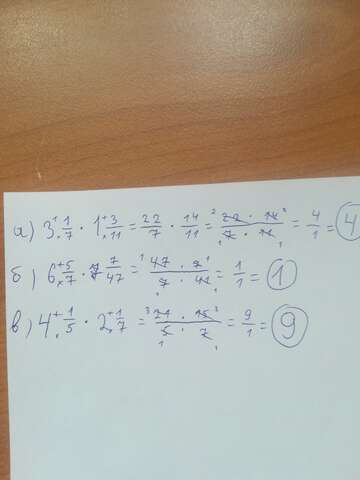 а) 3 1/7 · 1 3/11 = 22/7 · 14/11 = 22 · 14 / 7 · 11 = 4/1 = 4
б) 6 5/7 · 7/47 = 47 · 7 / 7 · 47 = 1/1 = 1
в) 4 1/5 · 2 1/7 = 21 · 15 / 5 · 7 = 9/1 = 9